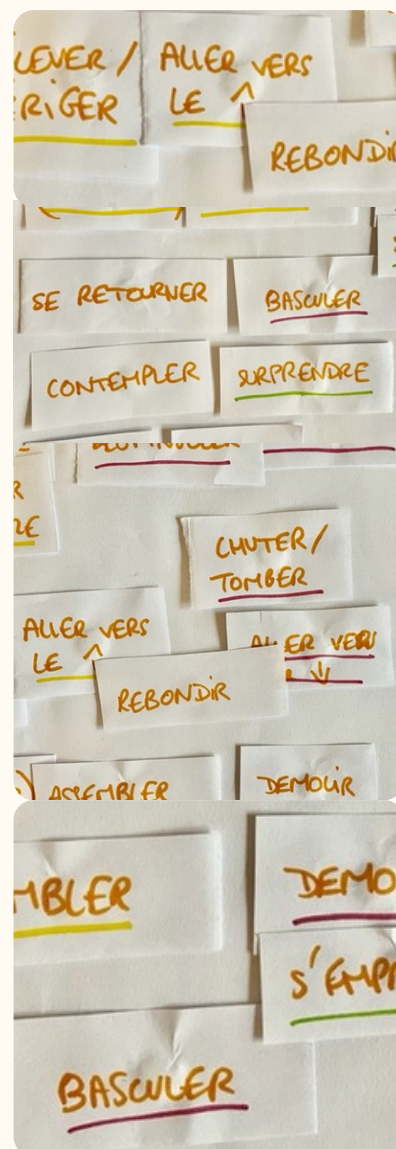 LEVER /
RIGER
ALLER VERS
LE ↑
REBONDIR
SE RETOURNER
BASCULER
CONTEMPLER
SURPRENDRE
CHUTER /
TOMBER
ALLER VERS
LE ^
ALLER VERS
↓
REBONDIR
ASSEMBLER
DEMOLIR
MBLER
DEMO
S'EMPR
BASCULER